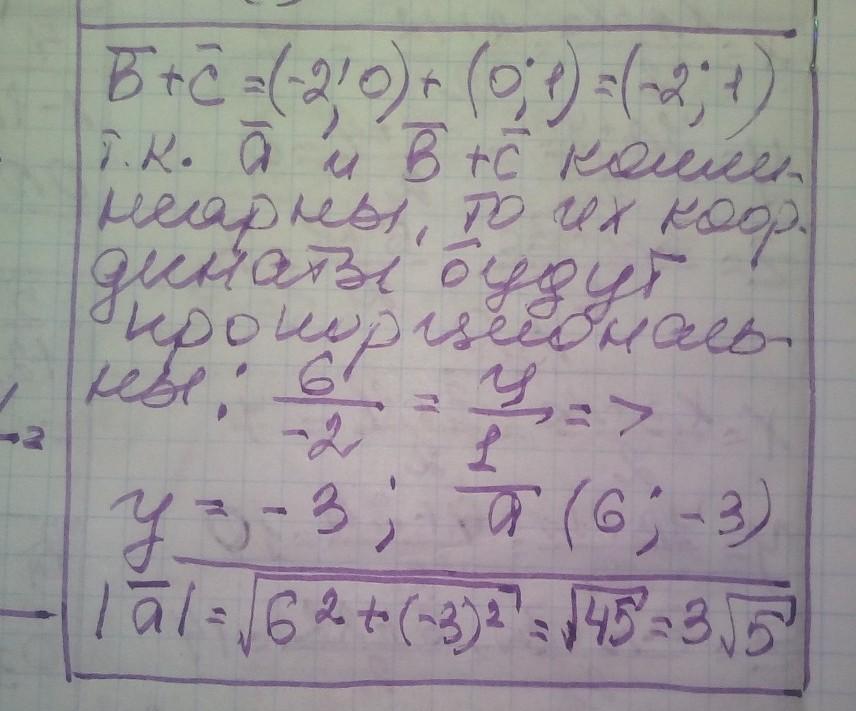 B̅ + c̅ = (-2; 0) + (0; 1) = (-2; 1)
т.к. a̅ и B̅ + c̅ колли-
неарны, то их коор-
динаты будут
пропорциональ-
ны: 6/-2 = y/1 =>
y = -3; a̅ (6; -3)
|a̅| = √(6² + (-3)²) = √45 = 3√5